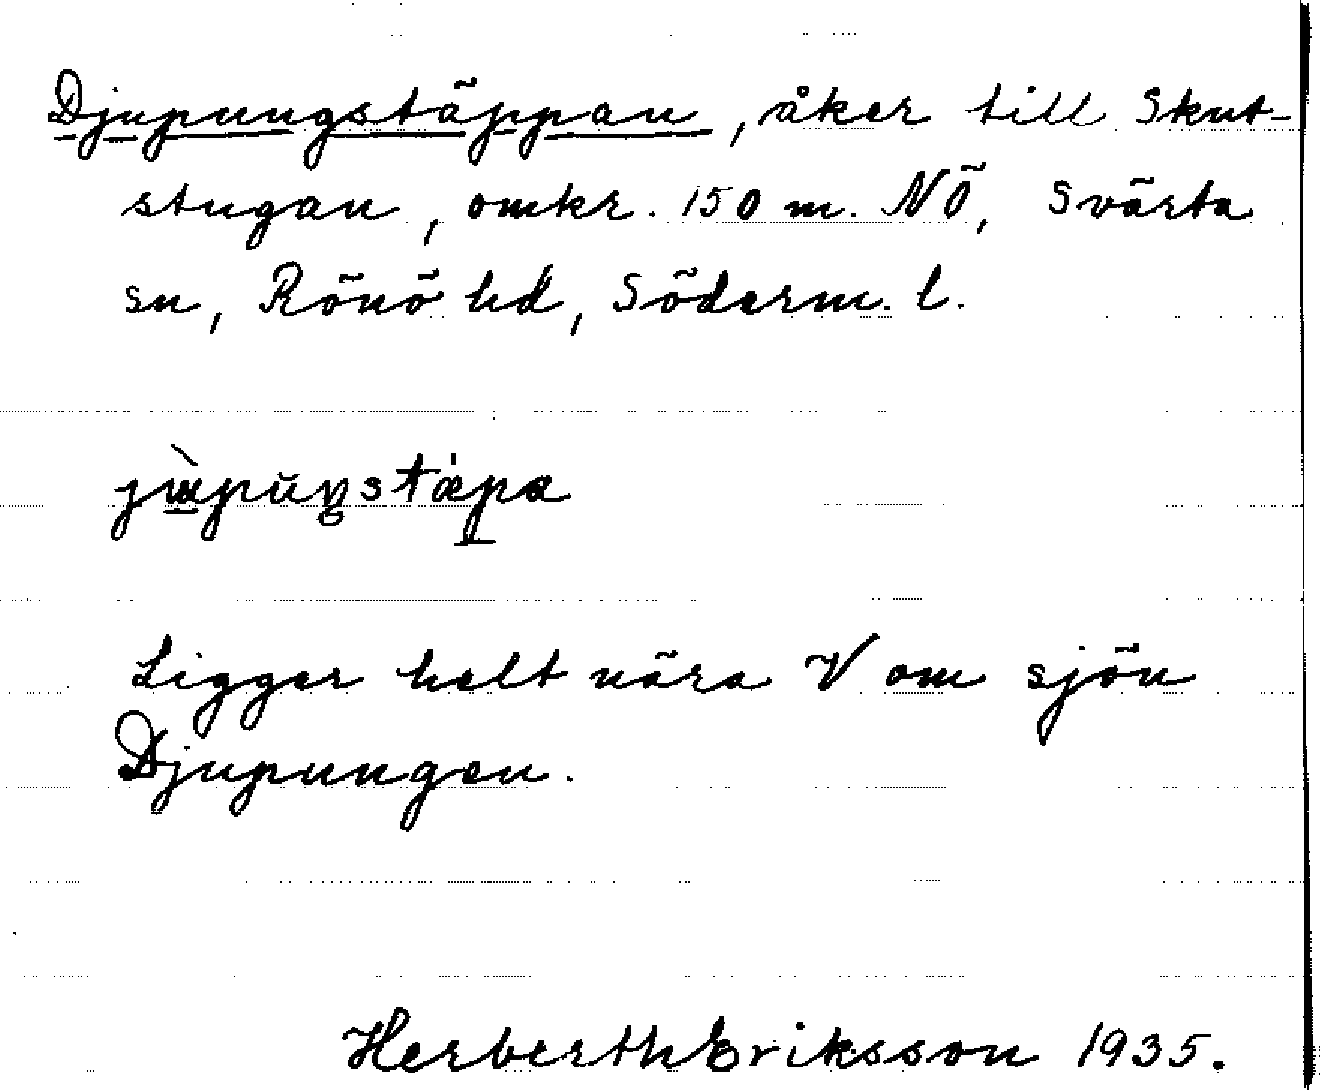 Djupungstäppan, åker till Skut-
stugan, omkr. 150 m. NÖ, Svärta
sn, Rönö hd, Söderm. l.
Ligger helt nära V om sjön
Djupungen.
Herberth Eriksson 1935.